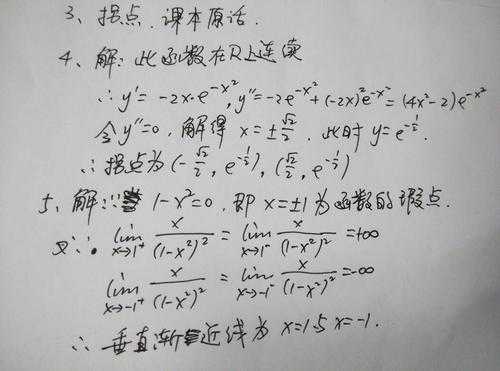 3、拐点.课本原话.
4、解:此函数在R上连续
∴y'=-2x·e^{-x²}, y''=-2e^{-x²}+(-2x)²e^{-x²}=(4x²-2)e^{-x²}
令y''=0,解得x=±\frac{√2}{2}.此时y=e^{-\frac{1}{2}}.
∴拐点为(-\frac{√2}{2}, e^{-\frac{1}{2}}), (\frac{√2}{2}, e^{-\frac{1}{2}})
5、解:∵1-x²=0.即x=±1为函数的瑕点.
又∵\lim_{x→1⁺}\frac{x}{(1-x²)²}=\lim_{x→1⁻}\frac{x}{(1-x²)²}=+∞
\lim_{x→-1⁺}\frac{x}{(1-x²)²}=\lim_{x→-1⁻}\frac{x}{(1-x²)²}=-∞
∴垂直渐近线为x=1与x=-1.